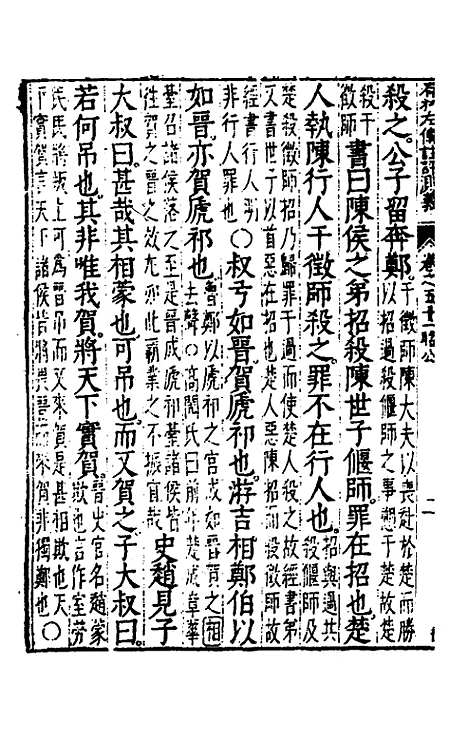 春秋左傳註評測義 卷之五十一 昭公 二
殺之。公子留奔鄭。干徵師陳大夫以喪赴於楚而勝以招過殺偃師之事愬于楚故楚
殺干徵師書曰陳侯之弟招殺陳世子偃師。罪在招也。楚
人執陳行人干徵師殺之。罪不在行人也。招與過共殺偃師及
楚殺徵師招乃歸罪于過而使楚人殺之故經書弟書世子以首惡在招也楚人惡陳招而殺徵師故
經書行人明非行人罪也○叔弓如晉賀虒祁也。游吉相鄭伯以
如晉。亦賀虒祁也。魯鄭以虒祁之宮成如賀之相去聲○高閌氏曰前年楚成章華
臺召諸侯落之至是晉成虒祁臺諸侯皆往賀之晉之效尤此霸業之不振宜哉史趙見子
大叔曰。甚哉其相蒙也。可吊也。而又賀之。子大叔曰。
若何吊也。其非唯我賀。將天下實賀。晉史官名趙蒙欺也言作室勞
民民將叛上可為晉吊而又來賀是甚相欺也天下實賀言天下諸侯皆將畏晉而來賀非獨鄭也○